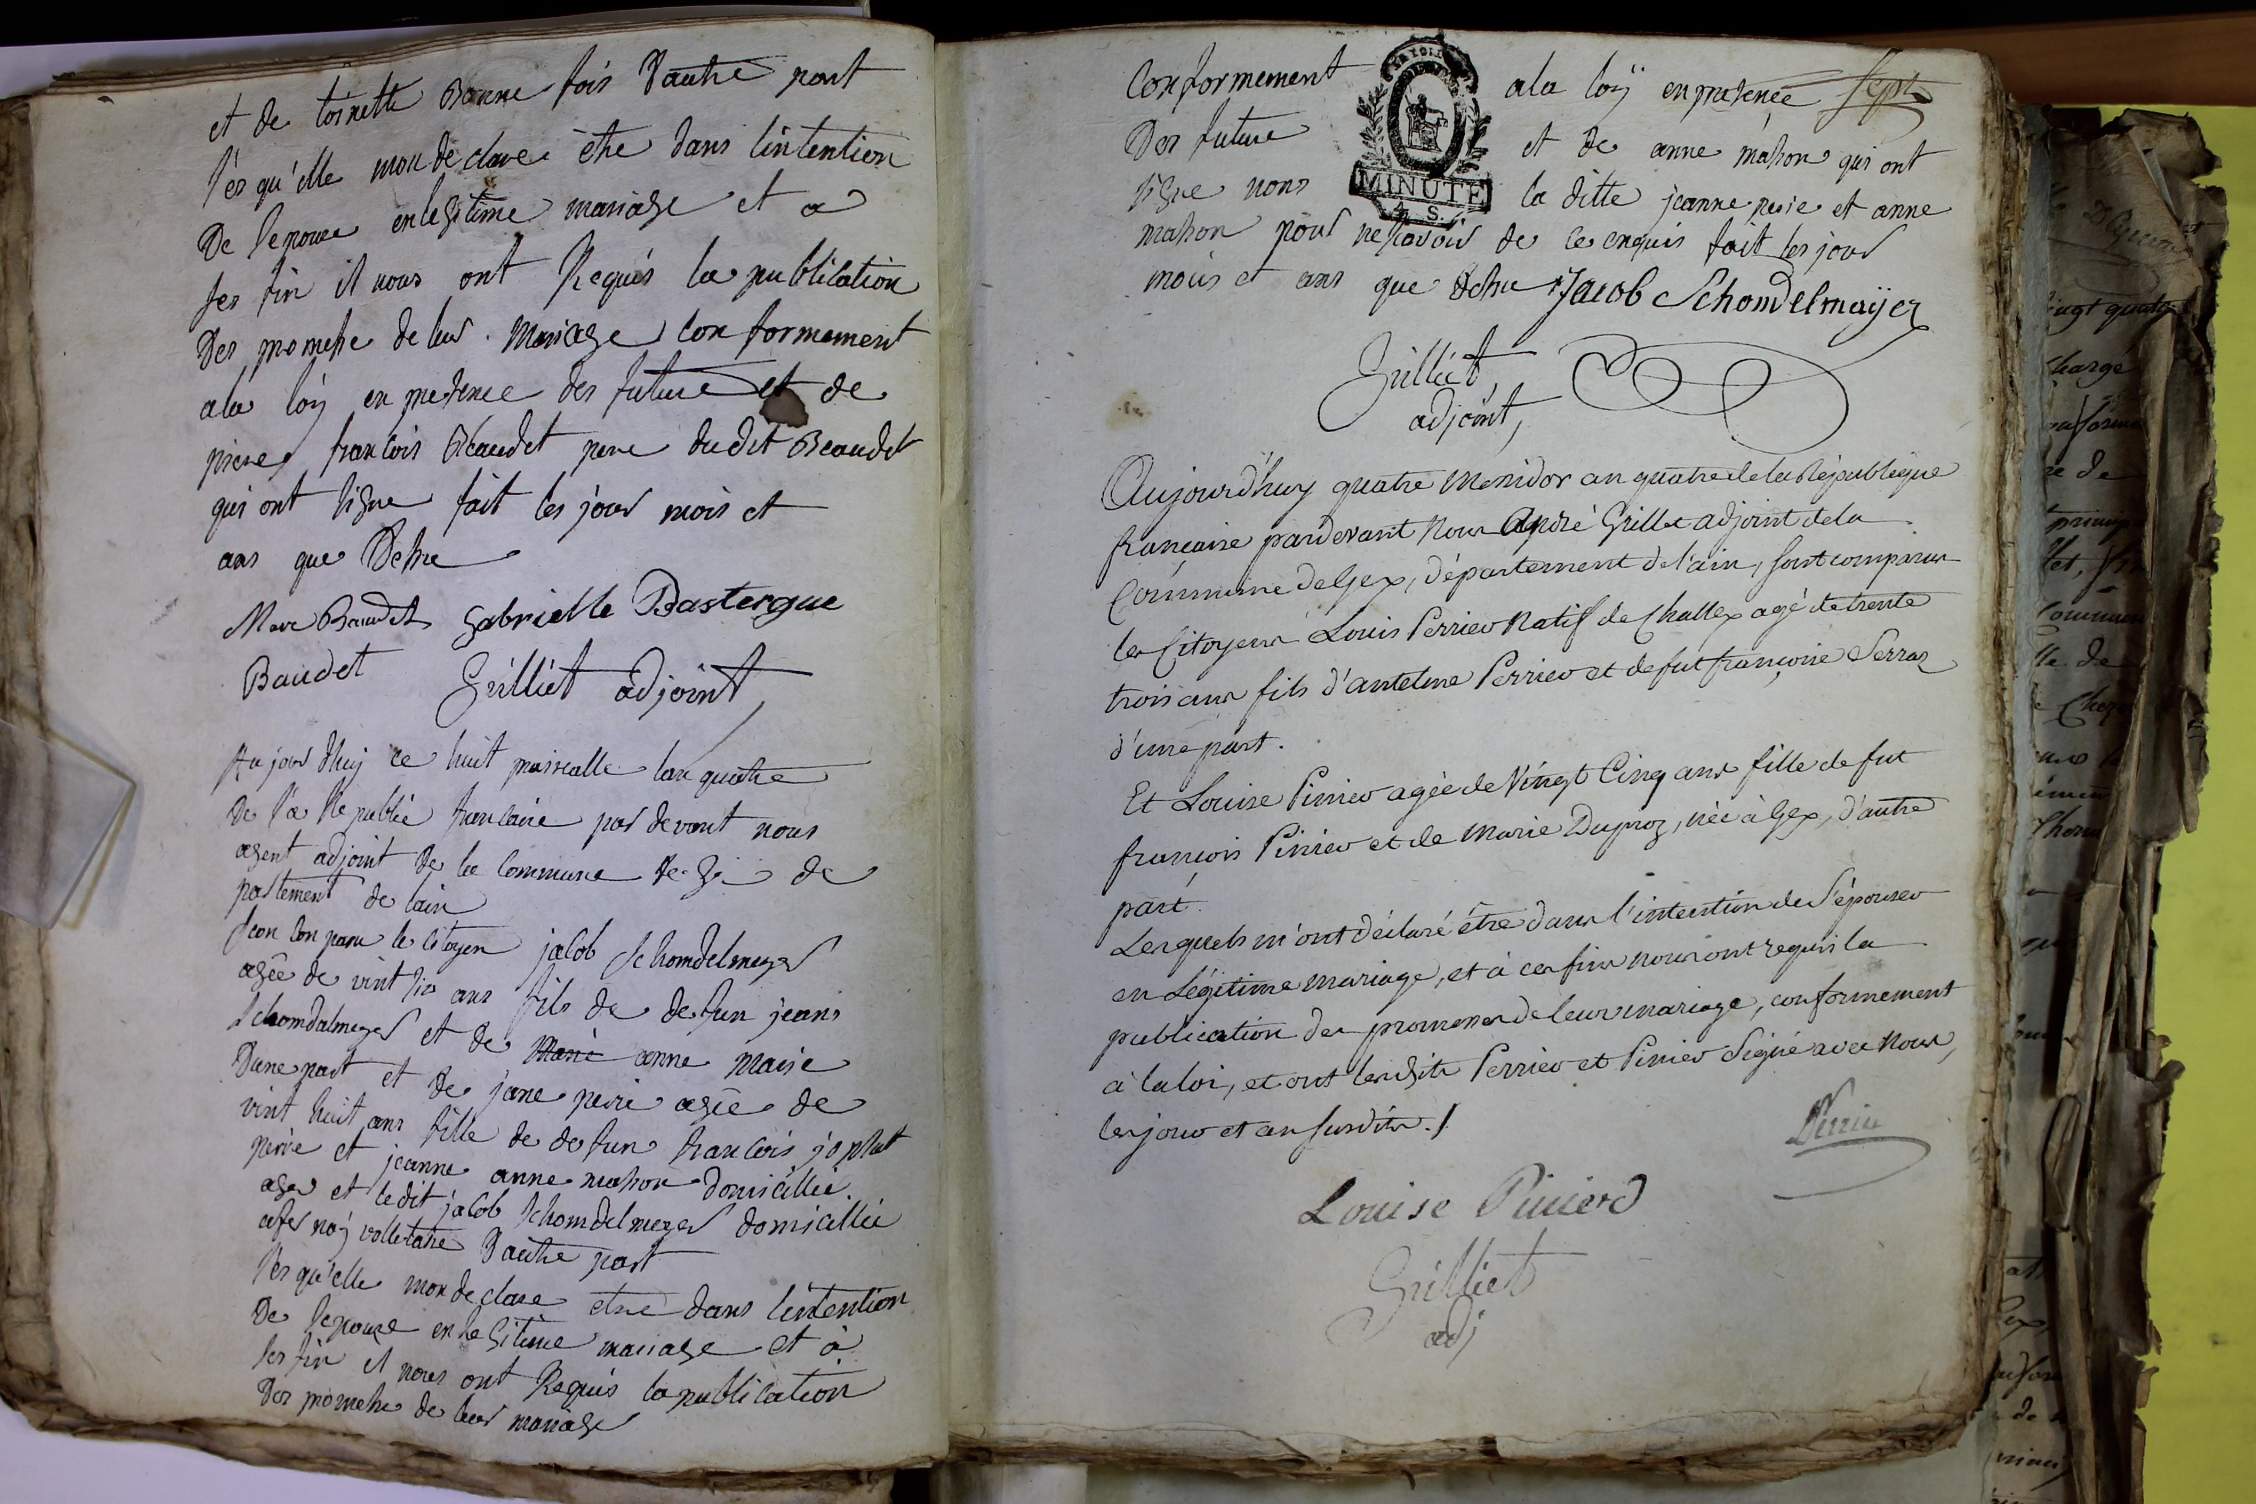 et de toinette Bonne fois Dautre part
les qu'elle mon declare être dans lintention
De sepouse en legitime mariage et a
ses fin il nous ont Requis la publication
Des promesse de leur mariage conformement
ala loy en presence des future et de
piere francois Beaudet pere dudit Beaudet
qui ont signe fait les jour mois et
ans que Desse
Marc Baudet Gabrielle Bastergue
Baudet Grilliet adjoint,
Au jour dhuy ce huit prairialle lan quatre
De la Republic francaise par devant nous
agent adjoint de la commune de Gex de
partement de lain
son conparu le citoyen jacob schomdelmeyer
agée de vint six ans fils de defun jeans
schomdalmeyer et de Marie anne Marie
Dune part et de jane perie agée de
vint huit ans fille de defun francois
perie et jeanne anne mason domicillié
agex et ledit jacob schomdelmeyer domicillié
afernoy volletaire Dautre part
les qu'elle mon declare etre dans lintention
De sepouse en legitime mariage et à
ses fin il nous ont Requis la publication
Des promesse de leur mariage
conformement ala loy en presence sept
MINUTE
4. S.
Des future et de anne mason qui ont
signe nons la ditte jeanne perie et anne
mason pour ne savoir de ce enquis fait les jour
mois et ans que desse Jacob Schomdelmaÿer
Grilliet,
adjoint,
Aujourd'huy quatre Messidor an quatre de la République
française pardevant Nous André Grillet adjoint dela
Commune de Gex, département de l'ain, sont comparus
les Citoyens Louis Perrier Natif de Challex agé de trente
trois ans fils d'antelme Perrier et de fut françoise Serraz
d'une part.
Et Louise Pinier agée de Vingt Cinq ans fille de fut
françois Pinier et de Marie Duproz, née à Gex, d'autre
part.
Lesquels m'ont déclaré être dans l'intention de S'épouser
en Légitime mariage, et à ces fins nous ont requis la
publication des promesses de leur mariage, conformement
à la loi, et ont lesdits Perrier et Pinier Signé avec Nous,
les jour et an susdits./.
Louise Piniero
Grilliet
adj